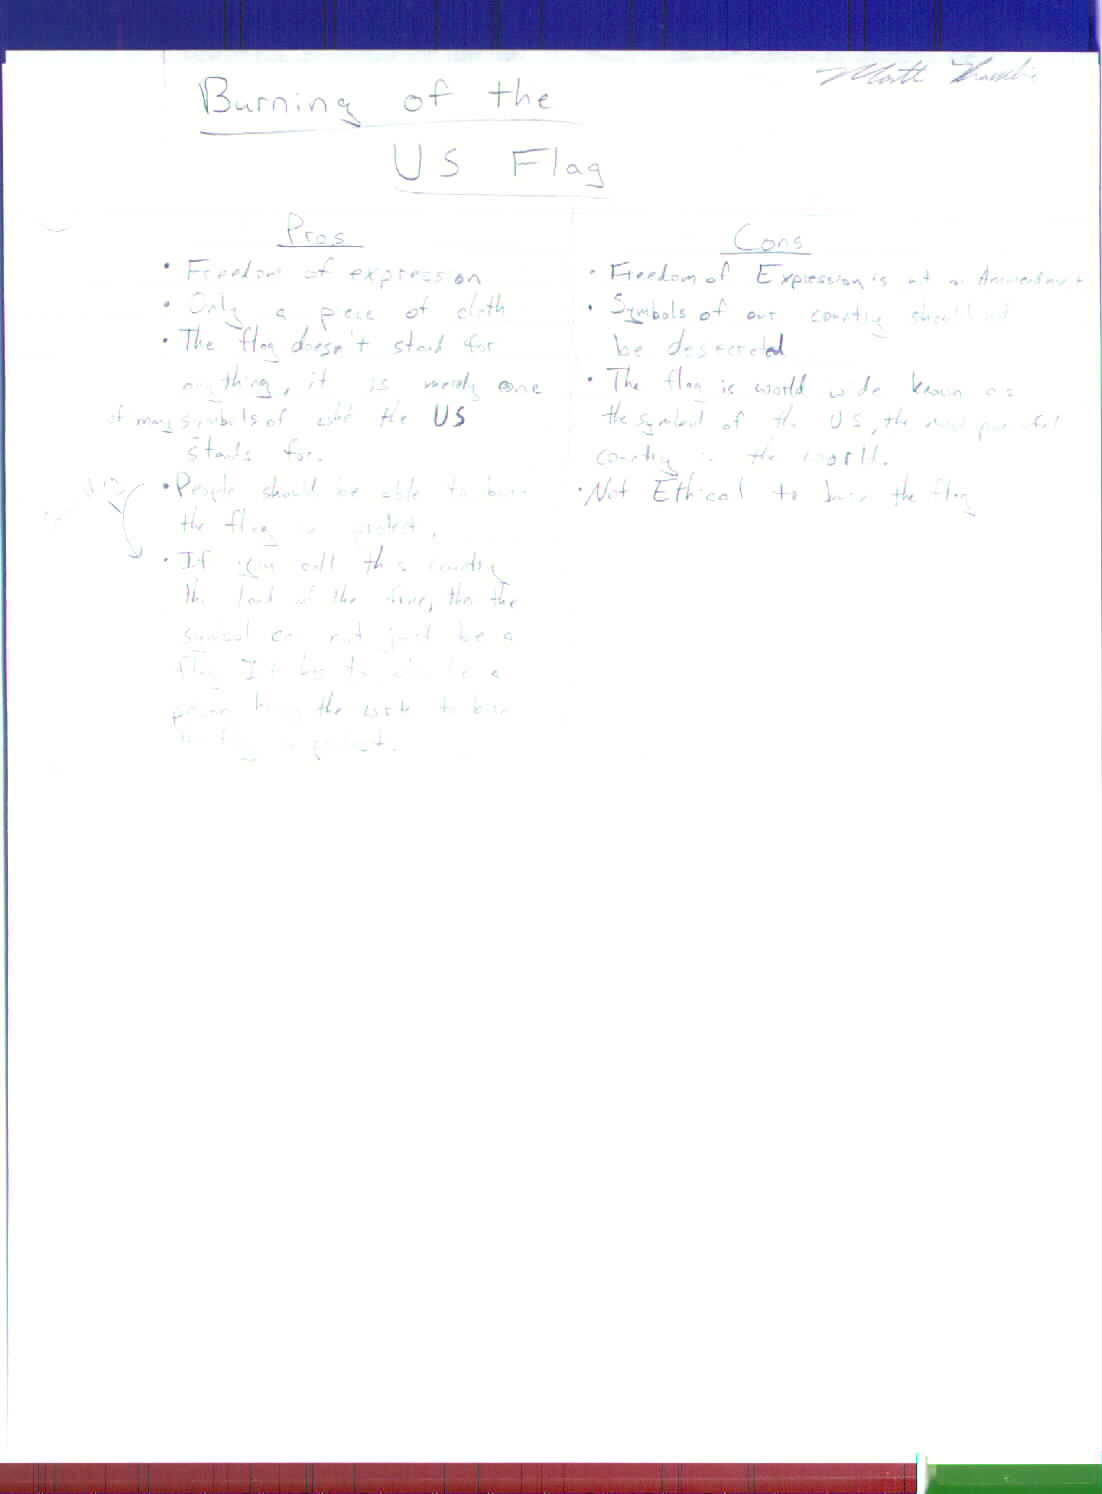 Matt
Burning of the
US Flag
Pros
• Freedom of expression
• Only a piece of cloth
• The flag doesn't stand for
anything, it is merely one
of many symbols of what the US
stands for.
• People should be able to burn
the flag in protest.
• If you call this country
the land of the free, then the
symbol can not just be a
flag. It has to also be a
person the to burn
the flag in protest.
Cons
• Freedom of Expression is not an Amendment
• Symbols of our country should not
be desecrated
• The flag is world wide known as
the symbol of the US, the most powerful
country in the world.
• Not Ethical to burn the flag